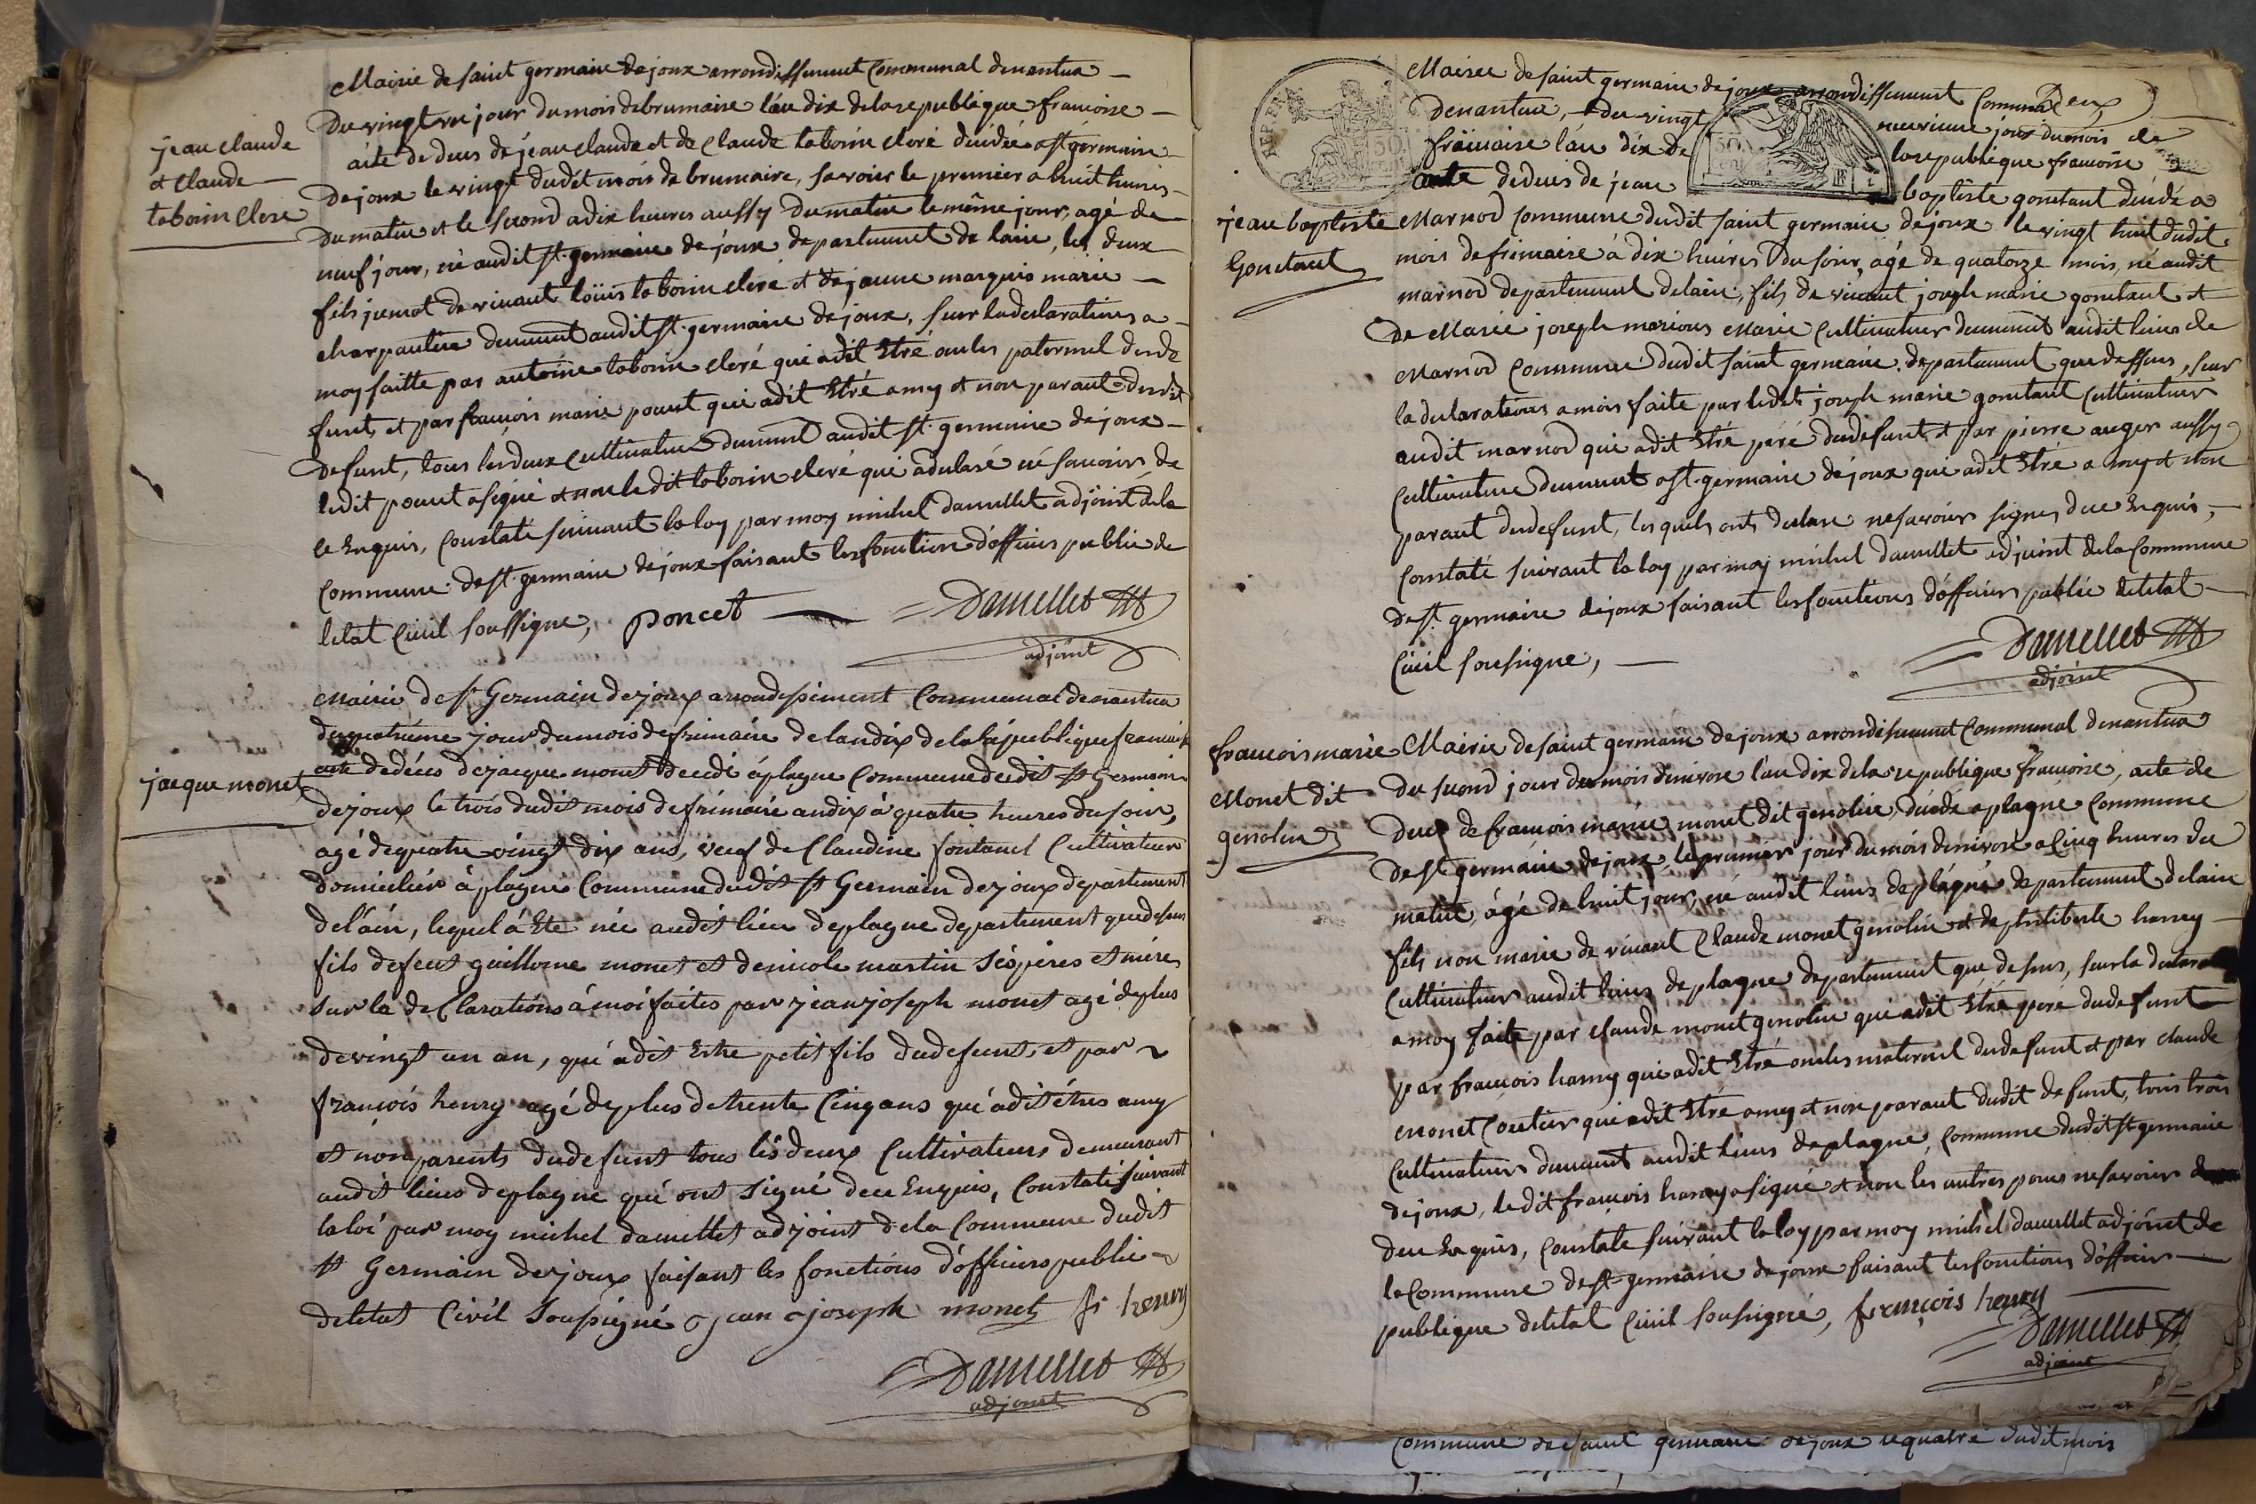 jean claude
et claude
tabouin cleré
Mairie de saint germain de joux arrondissement Communal denantua
Du vingt un jour du mois de brumaire l'an dix de la republique francoise
acte de deces de jean claude et de claude tabouin cleré décédée a st germain
De joux le vingt dudit mois de brumaire, savoir le premier a huit heures
du matin et le second a dix heures aussy du matin le même jour, agé de
neuf jour, né audit st germain de joux departement de lain, les deux
fils jumot de vivant loüis tabouin cleré et de jeanne marquis marie
charpentier demeurant audit st germain de joux, sur la declarations a
moy faitte par antoine tabouin cleré qui a dit Etré oncles paternel dude
funt, et par francois marie poncet qui a dit Etré amy et non parant dudit
Defunt, tous les deux Cultivateur demeurant audit st germain de joux
ledit poncet a signé et non ledit tabouin cleré qui a declaré né savoir de
ce Enquis, Constaté suivant la loy par moy michel damellet adjoint dela
Commune de st germain de joux faisant les fonction d'officier public de
letat Civil soussigne, poncet Damellet
adjoint
jacque monet
Mairie de st Germain de joux arrondissement Communal de nantua
du quatriéme jour du mois de frimaire de lan dix de la république francaise
acte de déces de jacque monet decedé a plagne Commune dudit st Germain
de joux le trois dudit mois de frimaire an dix à quatre heures du soir,
agé de quatre vingt dix ans, veuf de Claudine fontanel Cultivateur
domicilier à plagne Commune dudit st Germain de joux departement
de l'ain, lequel á Eté née audit lieu de plagne departement que dessus
fils de feut guillome monet et de nicole martin Sés péres et mére
sur la de Clarations á moi faites par jean joseph monet agé de plus
de vingt un an, qui a dit Estre petit fils du defunt, et par
francois henry agé de plus de trente Cinq ans qui a dit étres amy
et non parents du defunt tous lés deux Cultivateurs demeurant
audit lieu de plagne qui ont signé de ce Enquis, Constaté suivant
la loi par moy michel damellet adjoint de la Commune dudit
st Germain de joux faisant les fonctions d'officiers public
de létat Civil Soussigné jean joseph monet fr henry
Damellet
adjoint
Deux
Mairee de saint germain de joux arrondissement Communal
Denantua, du vingt neuvieme jour du mois de
frimaire l'an dix de la republique francoise
acte de deces de jean baptiste gonetant décédé a
jean baptiste
Gonetant
Marnod Commune dudit saint germain de joux le vingt huit dudit
mois de frimaire á dix heures du soir, agé de quatorze mois, né audit
marnod departement de lain, fils de vivant joseph marie gonetant et
De Marie joseph Marie Cultivateur demeurant audit lieu de
Marnod Commune dudit saint germain departement que dessus, sur
la declarations a mois faite par ledit joseph marie gonetant Cultivateur
audit marnod qui a dit Etré péré du defunt, et par pierre auger aussy
Cultivateur demeurant a st germain de joux qui a dit Etré amy et non
parant du defunt, lesquels ont declare ne savoir signer de ce Enquis,
Constaté suivant la loy par moy michel damellet adjoint de la Commune
de st germain de joux faisant les fonctions d'officier public de letat
Civil soussigne,
Damellet
adjoint
francois marie
Monet dit
genolin
Mairie de saint germain de joux arrondissement Communal denantua
Du second jour du mois de nivose l'an dix de la republique francoise, acte de
deces de francois marie monet dit genolin, décédé a plagne Commune
De st germain de joux, le premier jour du mois de nivose a Cinq heures du
matin, agé de huit jour, né audit lieu de plagne departement de lain
fils non marie de vivant Claude monet genolin et de philiberte hanry
Cultivateur audit lieu de plagne departement que dessus, sur la declaration
a moy faite par claude monet genolin qui a dit Etré pere du defunt
par francois hanry qui a dit Etré oncles maternel du defunt et par claude
Monet Coutier qui a dit Etré amy et non parant dudit defunt, tous trois
Cultivateur demeurant audit lieu de plagne, Commune dudit st germain
de joux, ledit francois hanry a signé et non les autres pour ne savoir
de ce Enquis, Constate suivant la loy par moy michel damellet adjoint de
la Commune de st germain de joux faisant les fonctions d'officier
publique de letat Civil soussigné, francois henry
Damellet
adjoint
Commune de saint germain de joux le quatre dudit mois